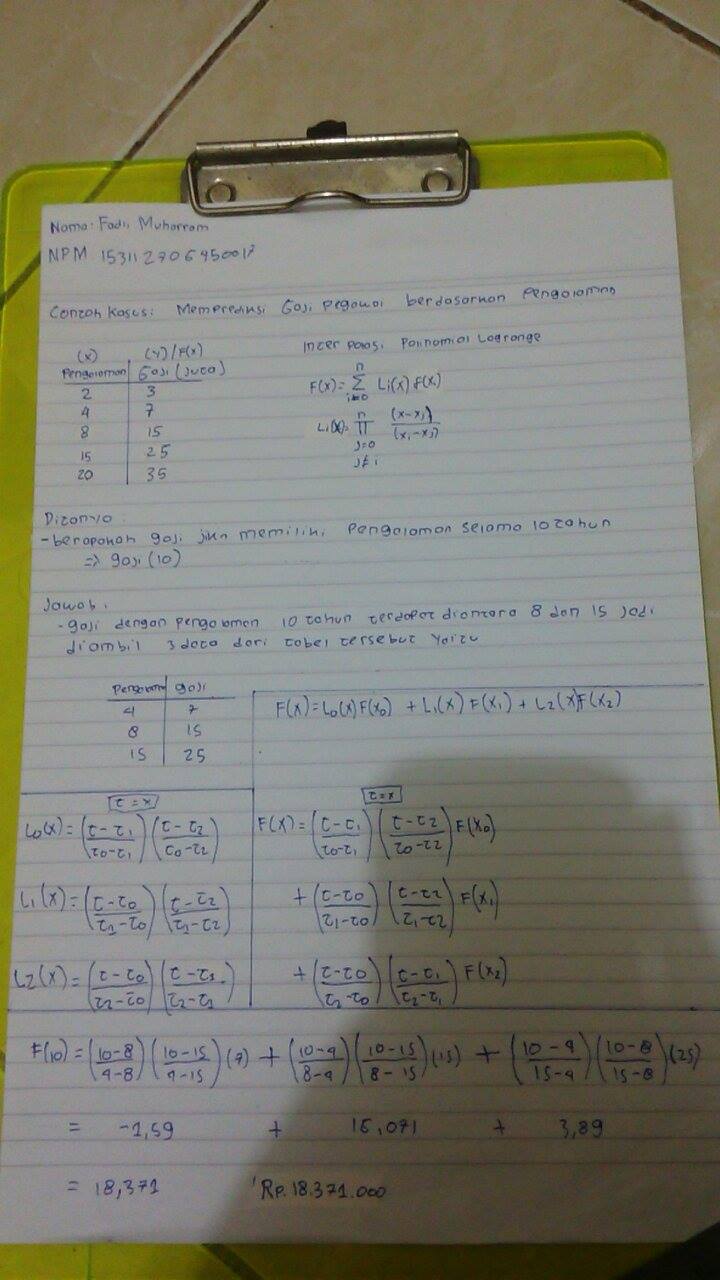 Nama: Fadli Muharram
NPM 153112706450017
Contoh Kasus: Memprediksi Gaji Pegawai berdasarkan Pengalaman
(x) (y)/F(x)
Pengalaman Gaji (juta)
2 3
4 7
8 15
15 25
20 35
Interpolasi Polinomial Lagrange
F(x) = n Σ i=0 Li(x) f(xi)
Li(x) = n Π j=0 j≠i (x-xj)/(xi-xj)
Ditanya
- berapakah gaji jika memiliki pengalaman selama 10 tahun
=> gaji (10)
Jawab:
- gaji dengan pengalaman 10 tahun terdapat diantara 8 dan 15 jadi
diambil 3 data dari tabel tersebut yaitu
Pengalaman gaji
4 7
8 15
15 25
F(x) = L0(x)F(x0) + L1(x)F(x1) + L2(x)F(x2)
τ = x
L0(x) = (τ-τ1/τ0-τ1)(τ-τ2/τ0-τ2)
L1(x) = (τ-τ0/τ1-τ0)(τ-τ2/τ1-τ2)
L2(x) = (τ-τ0/τ2-τ0)(τ-τ1/τ2-τ1)
x=τ
F(x) = (τ-τ1/τ0-τ1)(τ-τ2/τ0-τ2)F(x0)
+ (τ-τ0/τ1-τ0)(τ-τ2/τ1-τ2)F(x1)
+ (τ-τ0/τ2-τ0)(τ-τ1/τ2-τ1)F(x2)
F(10) = (10-8/4-8)(10-15/4-15)(7) + (10-4/8-4)(10-15/8-15)(15) + (10-4/15-4)(10-8/15-8)(25)
= -1,59 + 16,071 + 3,89
= 18,371 Rp.18.371.000